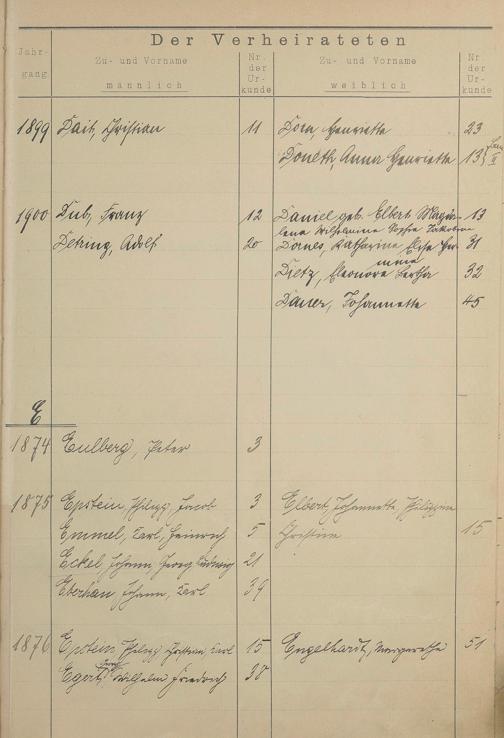 Der Verheirateten
Jahr-
gang
Zu- und Vorname
männlich
Nr.
der
Ur-
kunde
Zu- und Vorname
weiblich
Nr.
der
Ur-
kunde
1899 Christian 11 Dorn, Henriette 23
Anna Henriette 13
1900 Dub, Franz 12 Daniel geb. Elbert 13
Wilhelmine Sophie
Detring, Adolf 20 Katharine 31
Dietz, Eleonore Bertha 32
Dauer, Johannette 45
E
1874 Eulberg, Peter 3
1875 Epstein, Philipp Jacob 3 Elbert, Johannette, Philippine
Emmel, Karl, Heinrich 5 Christine 15
Eckel, Johann, Georg Ludwig 21
Johann, Karl 39
1876 Epstein, Philipp Karl 15 Engelhardt, Margarethe 51
Egert, Wilhelm Friedrich 38